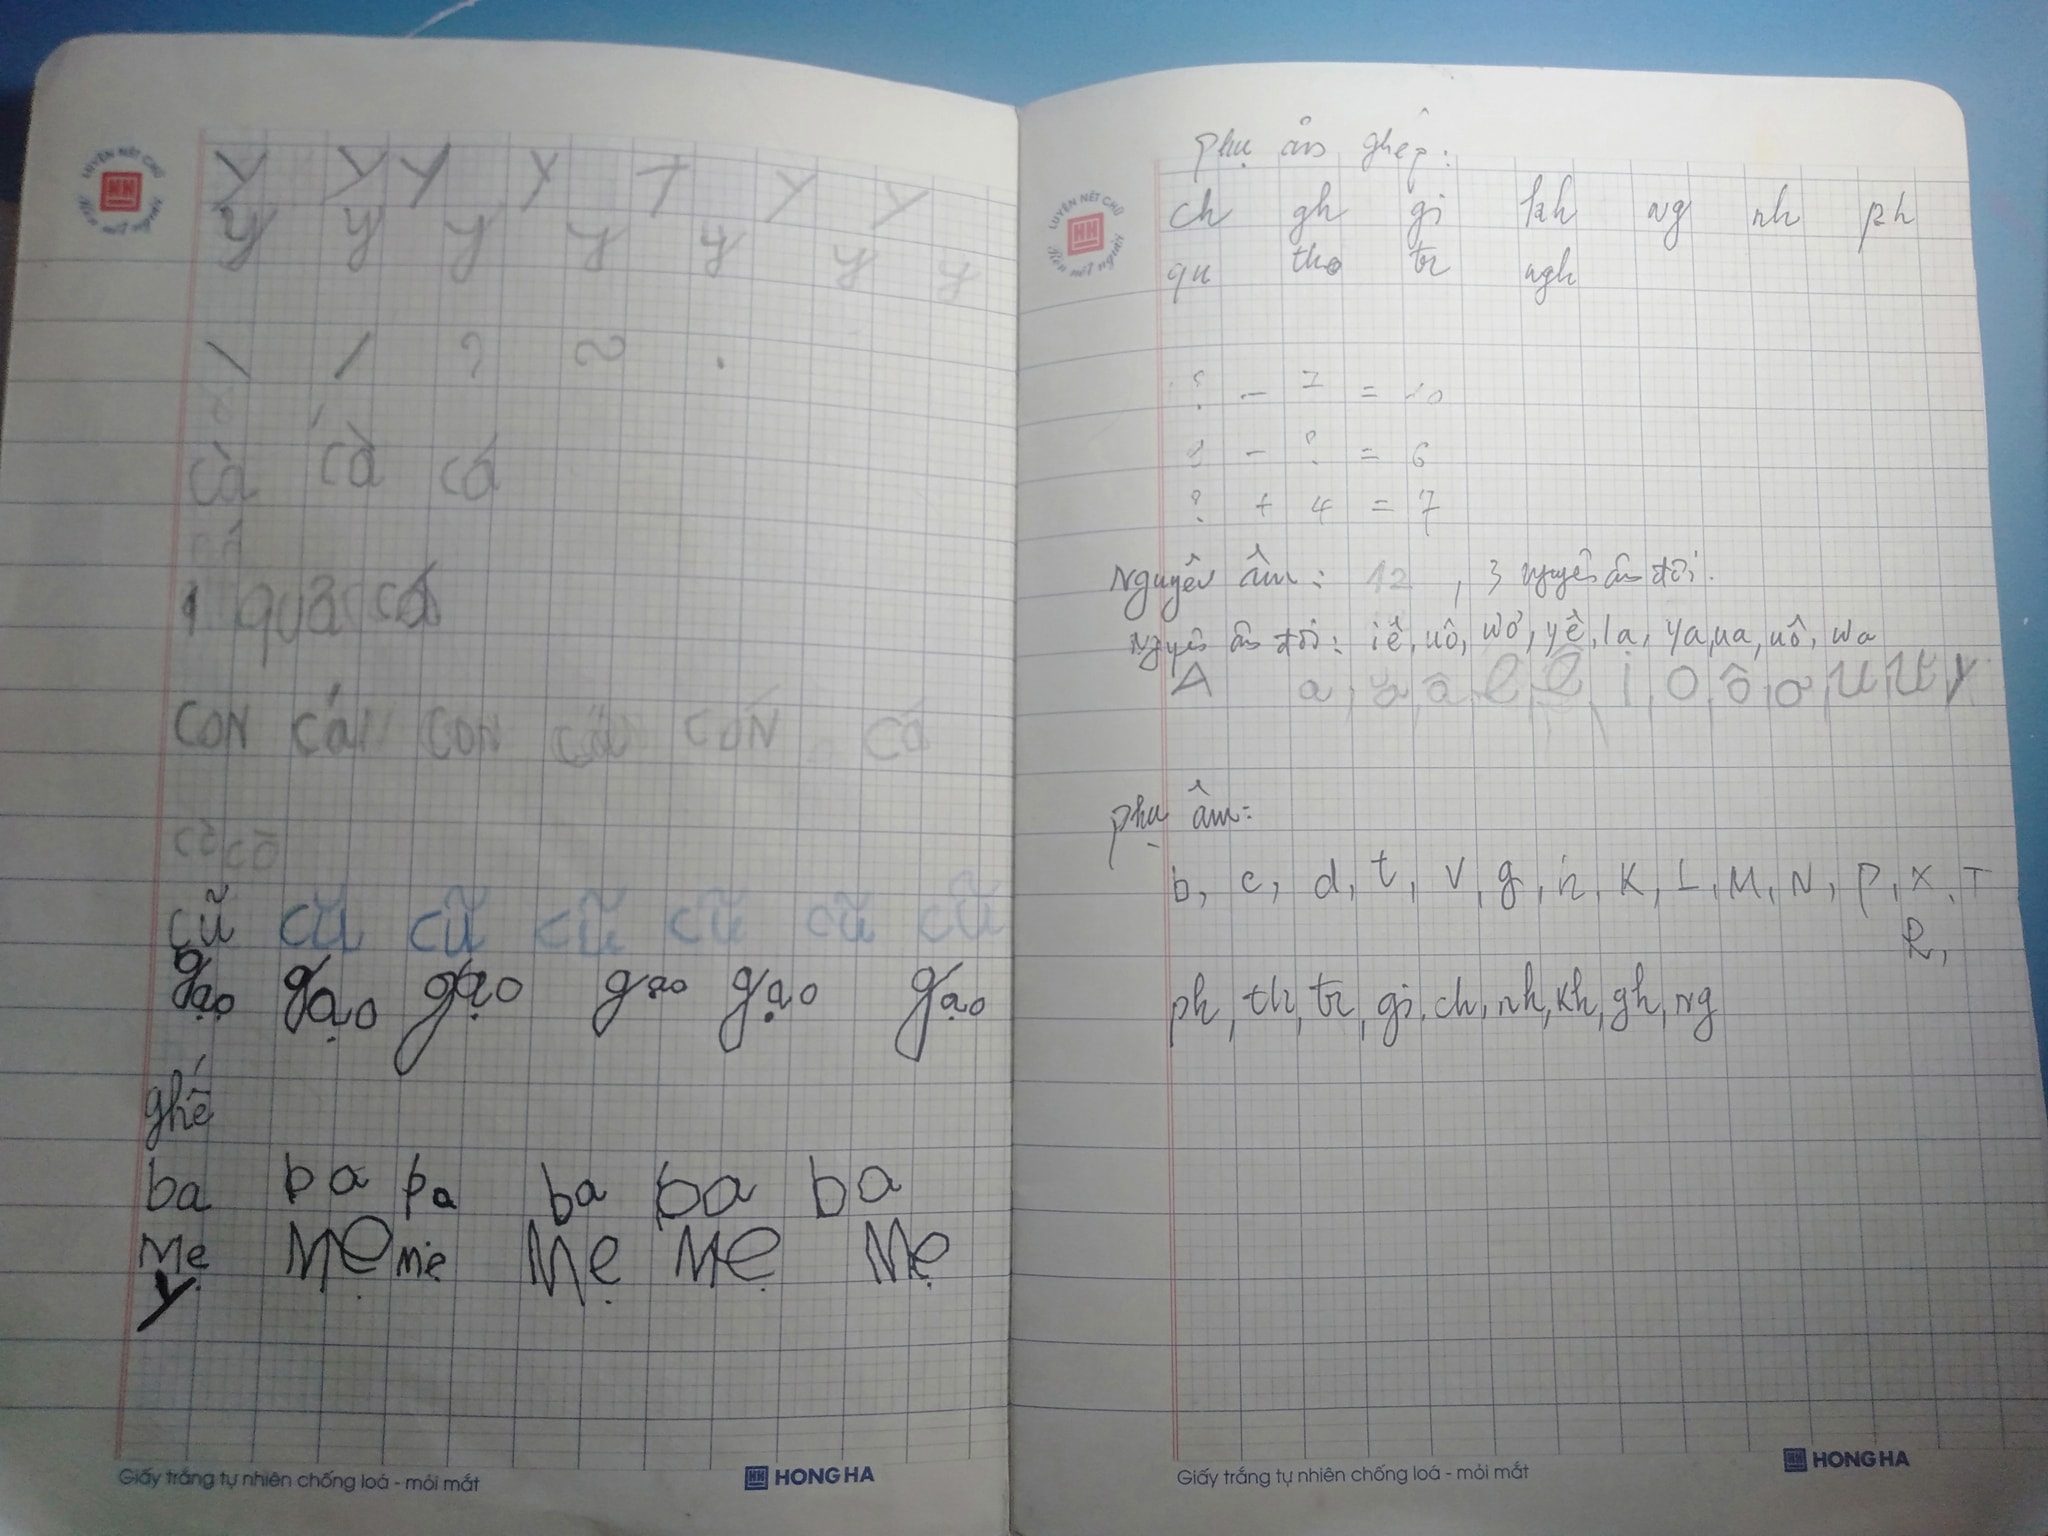 LUYỆN NÉT CHỮ
Rèn nết người
y y y y y y y
y y y y y y y
\ / ? ~ .
cà cà cá
1 quả cá
CON cá CON CON cá
cờ cờ
cũ cũ cũ cũ cũ cũ cũ
gạo gạo gạo gạo gạo gạo
ghế
ba ba pa ba ba ba
Mẹ Mẹ Mẹ Mẹ Mẹ Mẹ
y
Giấy trắng tự nhiên chống loá - mỏi mắt
HONG HA
LUYỆN NÉT CHỮ
Rèn nết người
phụ âm ghép:
ch gh gi kh ng nh ph
qu tho tr ngh
? - 7 = 10
? - ? = 6
? + 4 = 7
Nguyên âm: 12, 3 nguyên âm đôi.
Nguyên âm đôi: iê, uô, ươ, yê, ia, ya, ua, uô, ưa
A a, ă, â, e, ê, i, o, ô, ơ, u, ư, y
phụ âm:
b, c, d, t, v, g, h, K, L, M, N, P, X, T
R,
ph, th, tr, gi, ch, nh, kh, gh, ng
Giấy trắng tự nhiên chống loá - mỏi mắt
HONG HA